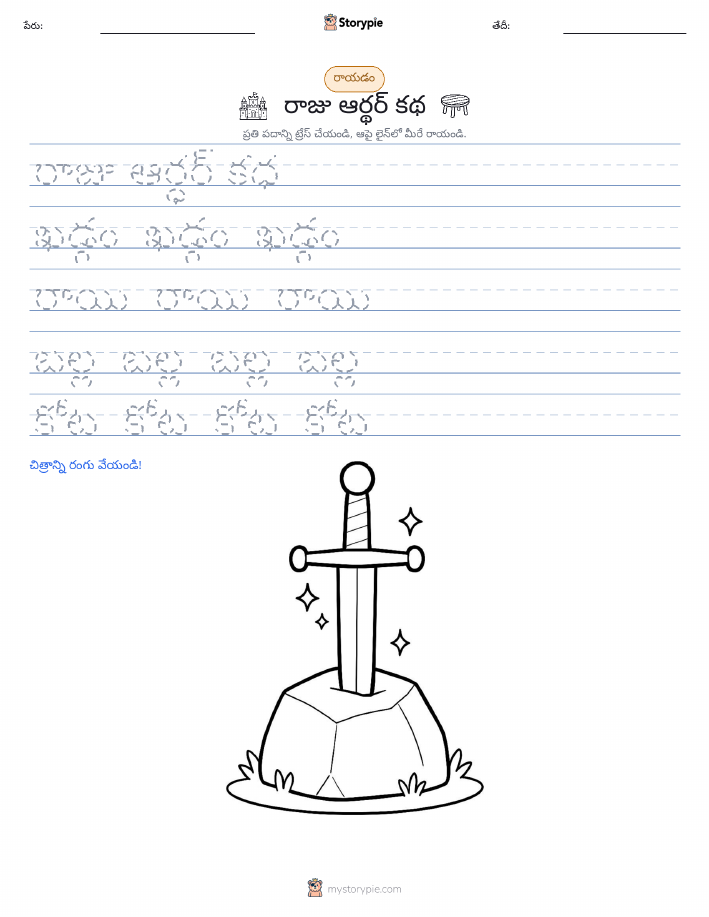 పేరు:
Storypie
తేదీ:
రాయడం
రాజు ఆర్థర్ కథ
ప్రతి పదాన్ని ట్రేస్ చేయండి, ఆపై లైన్‌లో మీరే రాయండి.
రాజు ఆర్థర్ కథ
ఖడ్గం ఖడ్గం ఖడ్గం
రాయి రాయి రాయి
బల్ల బల్ల బల్ల బల్ల
కోట కోట కోట కోట
చిత్రాన్ని రంగు వేయండి!
mystorypie.com